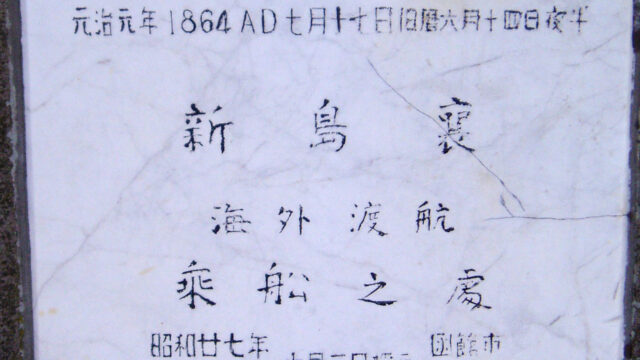 元治元年1864AD七月十七日旧暦六月十四日夜半
新島襄
海外渡航
乗船之處
昭和廿七年 函館市